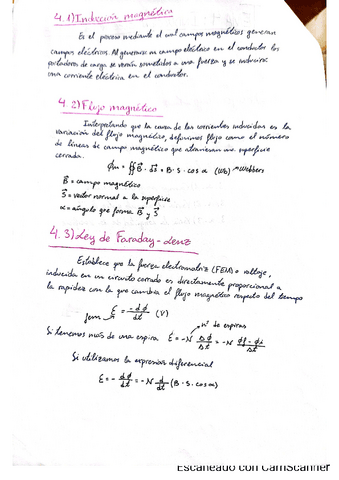 4.1) Inducción magnética
Es el proceso mediante el cual campos magnéticos generan
campos eléctricos. Al generarse un campo eléctrico en el conductor los
portadores de carga se verán sometidos a una fuerza y se inducirá
una corriente eléctrica en el conductor.
4.2) Flujo magnético
Interpretando que la causa de las corrientes inducidas es la
variación del flujo magnético, definimos flujo como el número
de líneas de campo magnético que atraviesan una superficie
cerrada.
ϕm = ∯ B⃗ · dS⃗ = B · S · cos α (Wb) → Webbers
B⃗ = campo magnético
S⃗ = vector normal a la superficie
α = ángulo que forma B⃗ y S⃗
4.3) Ley de Faraday-Lenz
Establece que la fuerza electromotriz (FEM) o voltaje,
inducida en un circuito cerrado es directamente proporcional a
la rapidez con la que cambia el flujo magnético respecto del tiempo
fem ε = -dϕ/dt (V)
nº de espiras
Si tenemos más de una espira ε = -N Δϕ/Δt = -N ϕf - ϕi/Δt
Si utilizamos la expresión diferencial
ε = - dϕ/dt = -N d/dt (B · S · cos α)
Escaneado con CamScanner